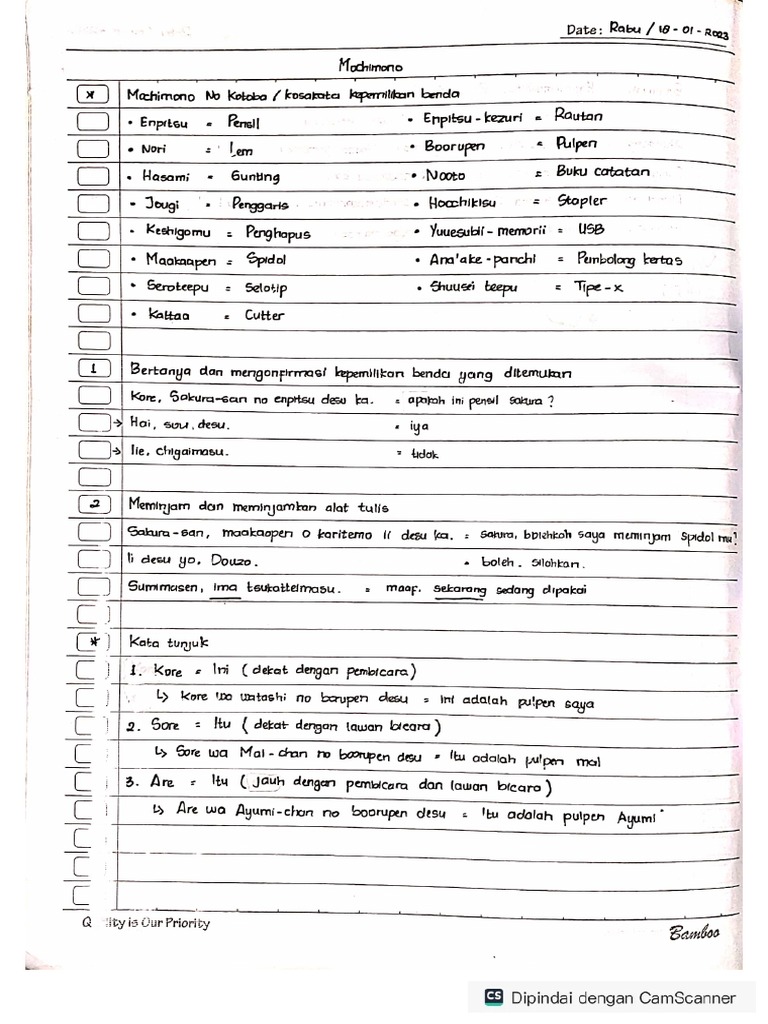 Date: Rabu / 18 - 01 - 2023
Mochimono
* Mochimono No Kotoba / kosakata kepemilikan benda
• Enpitsu = Pensil • Enpitsu - kezuri = Rautan
• Nori = Lem • Boorupen = Pulpen
• Hasami = Gunting • Nooto = Buku catatan
• Jougi = Penggaris • Hocchikisu = Stopler
• Keshigomu = Penghapus • Yuuesubii - memorii = USB
• Maakaapen = Spidol • Ana'ake - panchi = Pembolong kertas
• Seroteepu = Selotip • Shuusei teepu = Tipe - x
• Kattaa = Cutter
1 Bertanya dan mengonfirmasi kepemilikan benda yang ditemukan
Kore, Sakura-san no enpitsu desu ka. = apakah ini pensil sakura ?
→ Hai, sou, desu. = iya
→ Iie, chigaimasu. = tidak
2 Meminjam dan meminjamkan alat tulis
Sakura - san, maakaapen o karitemo ii desu ka. = sakura, bolehkah saya meminjam Spidol mu?
Ii desu yo, Douzo. • boleh. Silahkan.
Sumimasen, ima tsukatteimasu. = maaf. sekarang sedang dipakai
* Kata tunjuk
1. Kore = Ini ( dekat dengan pembicara )
↳ Kore wa watashi no borupen desu = ini adalah pulpen saya
2. Sore = Itu ( dekat dengan lawan bicara )
↳ Sore wa Mai - chan no boorupen desu = Itu adalah pulpen mai
3. Are = Itu ( jauh dengan pembicara dan lawan bicara )
↳ Are wa Ayumi-chan no boorupen desu = Itu adalah pulpen Ayumi
is Our Priority
Bamboo
CS Dipindai dengan CamScanner